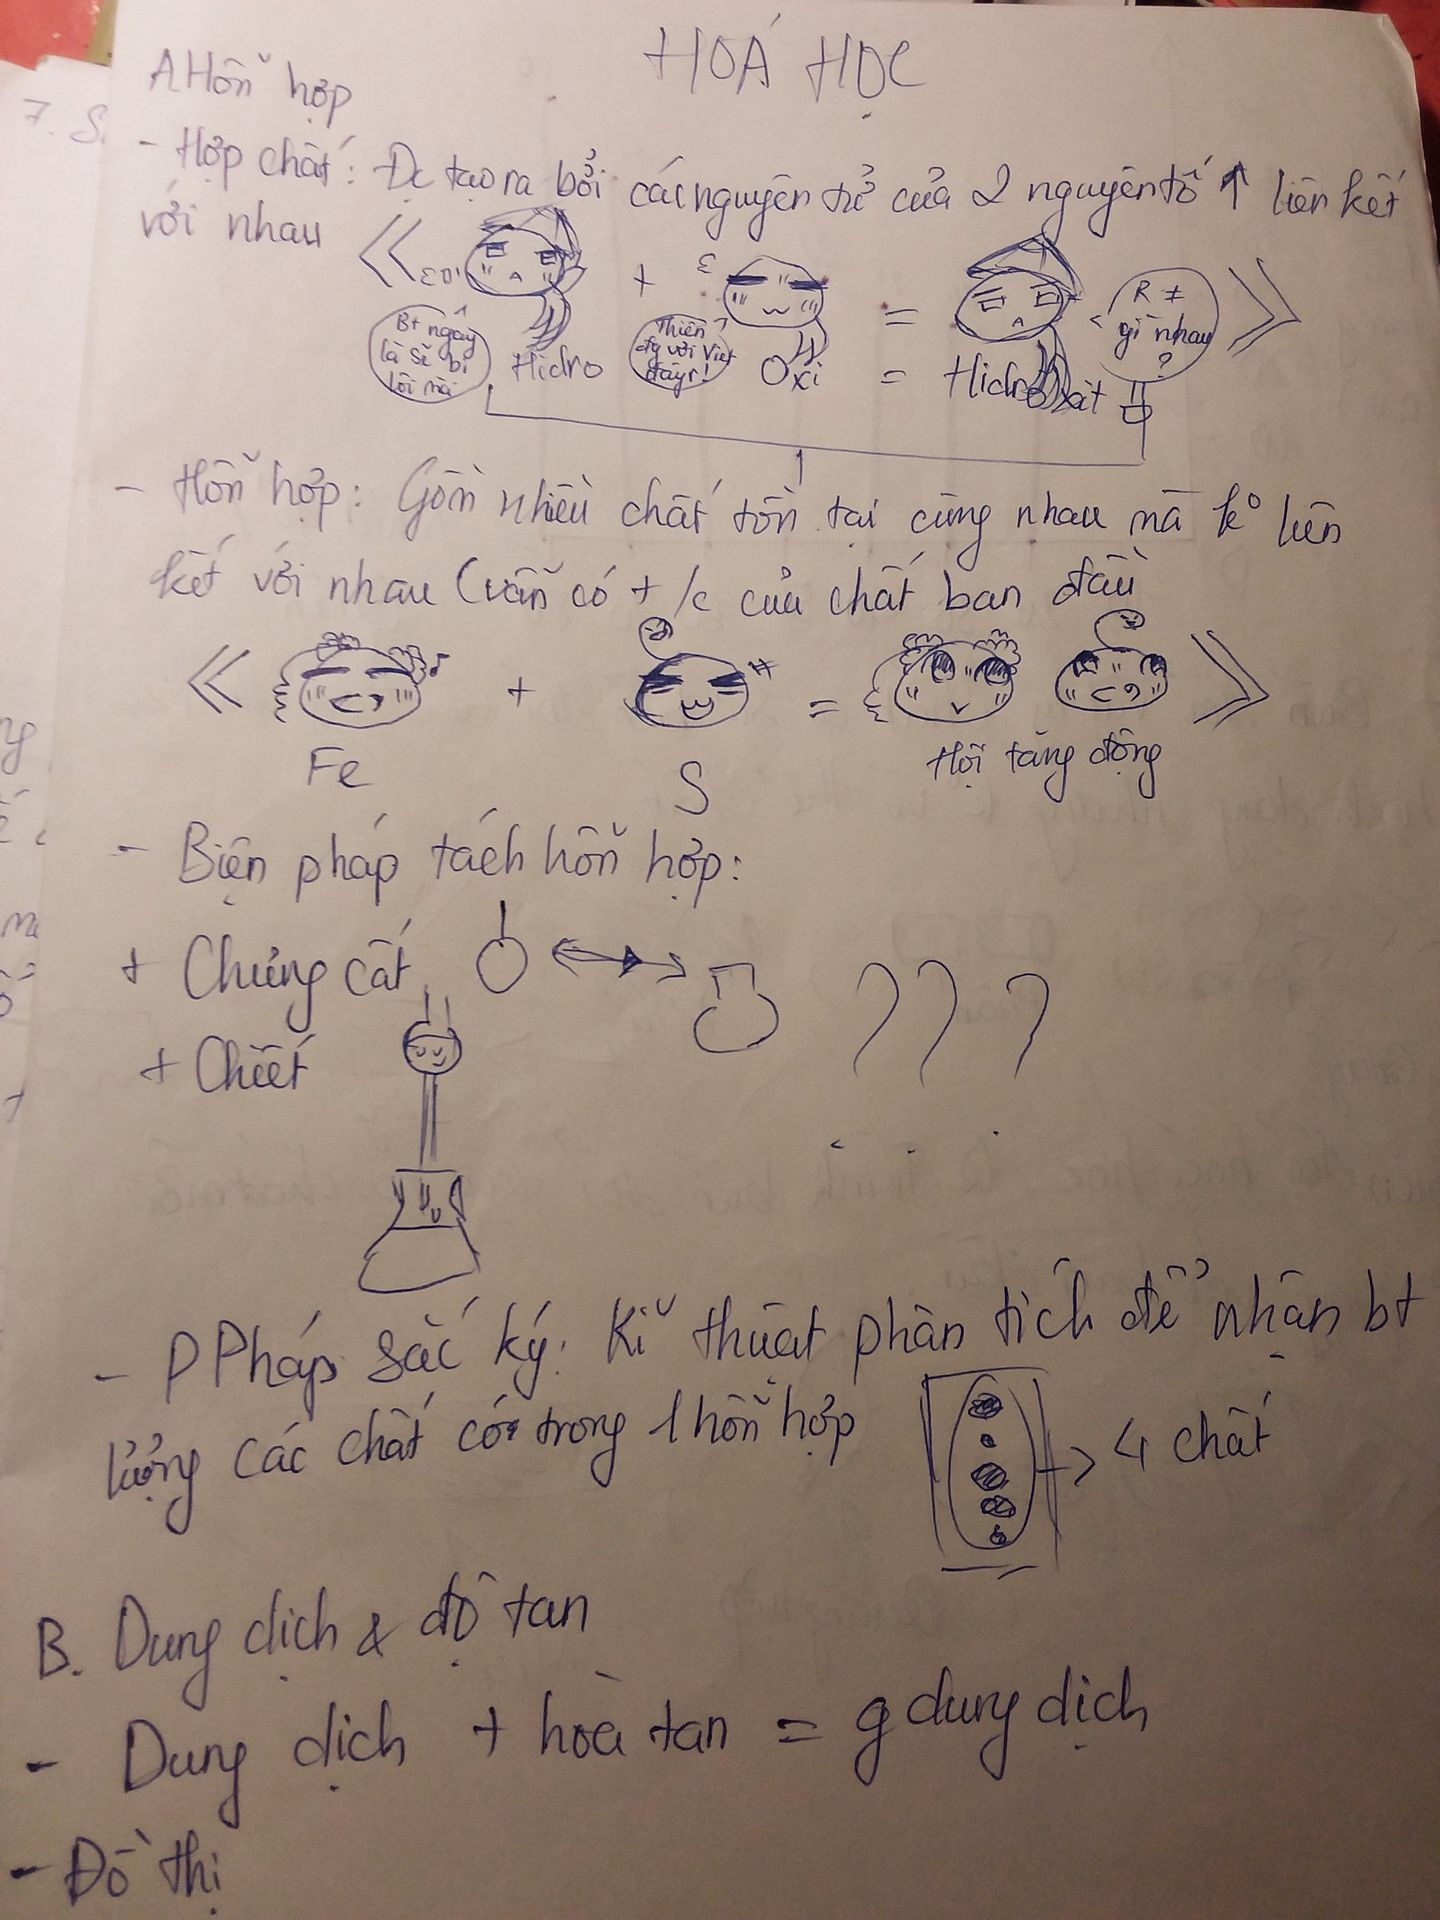 HOÁ HỌC
A Hỗn hợp
- Hợp chất: Đc tạo ra bởi các nguyên tử của 2 nguyên tố ↑ liên kết
với nhau
+
=
Bt ngay
là sẽ bị
lôi mà
Hidro
Thiên
địg với Việt
đây!
Oxi
=
Hidroxit
R ≠
gì nhau
?
- Hỗn hợp: Gồm nhiều chất tồn tại cùng nhau mà ko liên
kết với nhau (vẫn có t/c của chất ban đầu
+
=
Fe
S
Hội tăng động
- Biện pháp tách hỗn hợp:
+ Chưng cất
? ? ?
+ Chiết
- P Pháp sắc ký: Kĩ thuật phân tích để nhận bt
lượng các chất có trong 1 hỗn hợp
→ 4 chất
B. Dung dịch & độ tan
- Dung dịch + hoà tan = g dung dịch
- Đồ thị